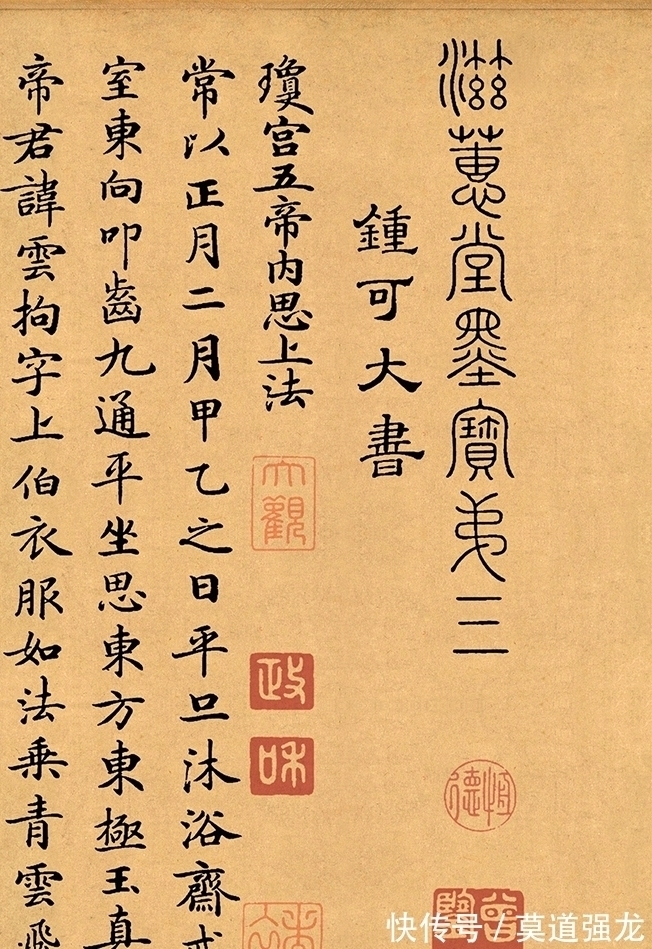 滋蕙堂墨寶弟三
鍾可大書
瓊宮五帝內思上法
常以正月二月甲乙之日平旦沐浴齋戒
室東向叩齒九通平坐思東方東極玉真
帝君諱雲拘字上伯衣服如法乘青雲飛
大觀
政
和
恆德
快传号/莫道强龙